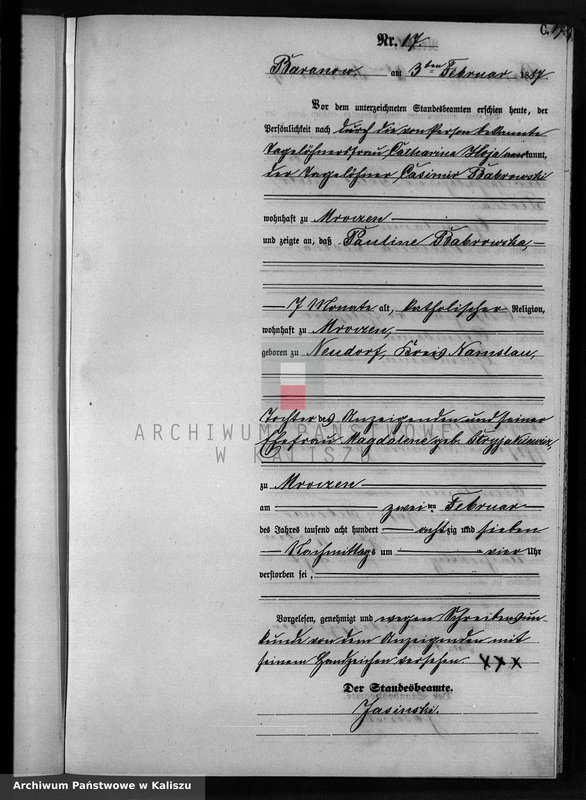 C.
Nr. 17.
Baranow, am 3ten Februar 1887.
Vor dem unterzeichneten Standesbeamten erschien heute, der
Persönlichkeit nach durch die von Person bekannte
Tagelöhnersfrau Catharina Hoja anerkannt,
der Tagelöhner Casimir Babrowski
wohnhaft zu Mroczen
und zeigte an, daß Pauline Babrowska,
7 Monate alt, katholischer Religion,
wohnhaft zu Mroczen,
geboren zu Neudorf, Kreis Namslau,
Tochter des Anzeigenden und seiner
Ehefrau Magdalene geb.
ARCHIWUM PAŃSTWOWE
W KALISZU
zu Mroczen
am zweiten Februar
des Jahres tausend acht hundert achtzig und sieben
Nachmittags um vier Uhr
verstorben sei,
Vorgelesen, genehmigt und wegen Schreibensun-
kunde von dem Anzeigenden mit
seinem Handzeichen versehen. xxx
Der Standesbeamte.
Jasinski.
Archiwum Państwowe w Kaliszu